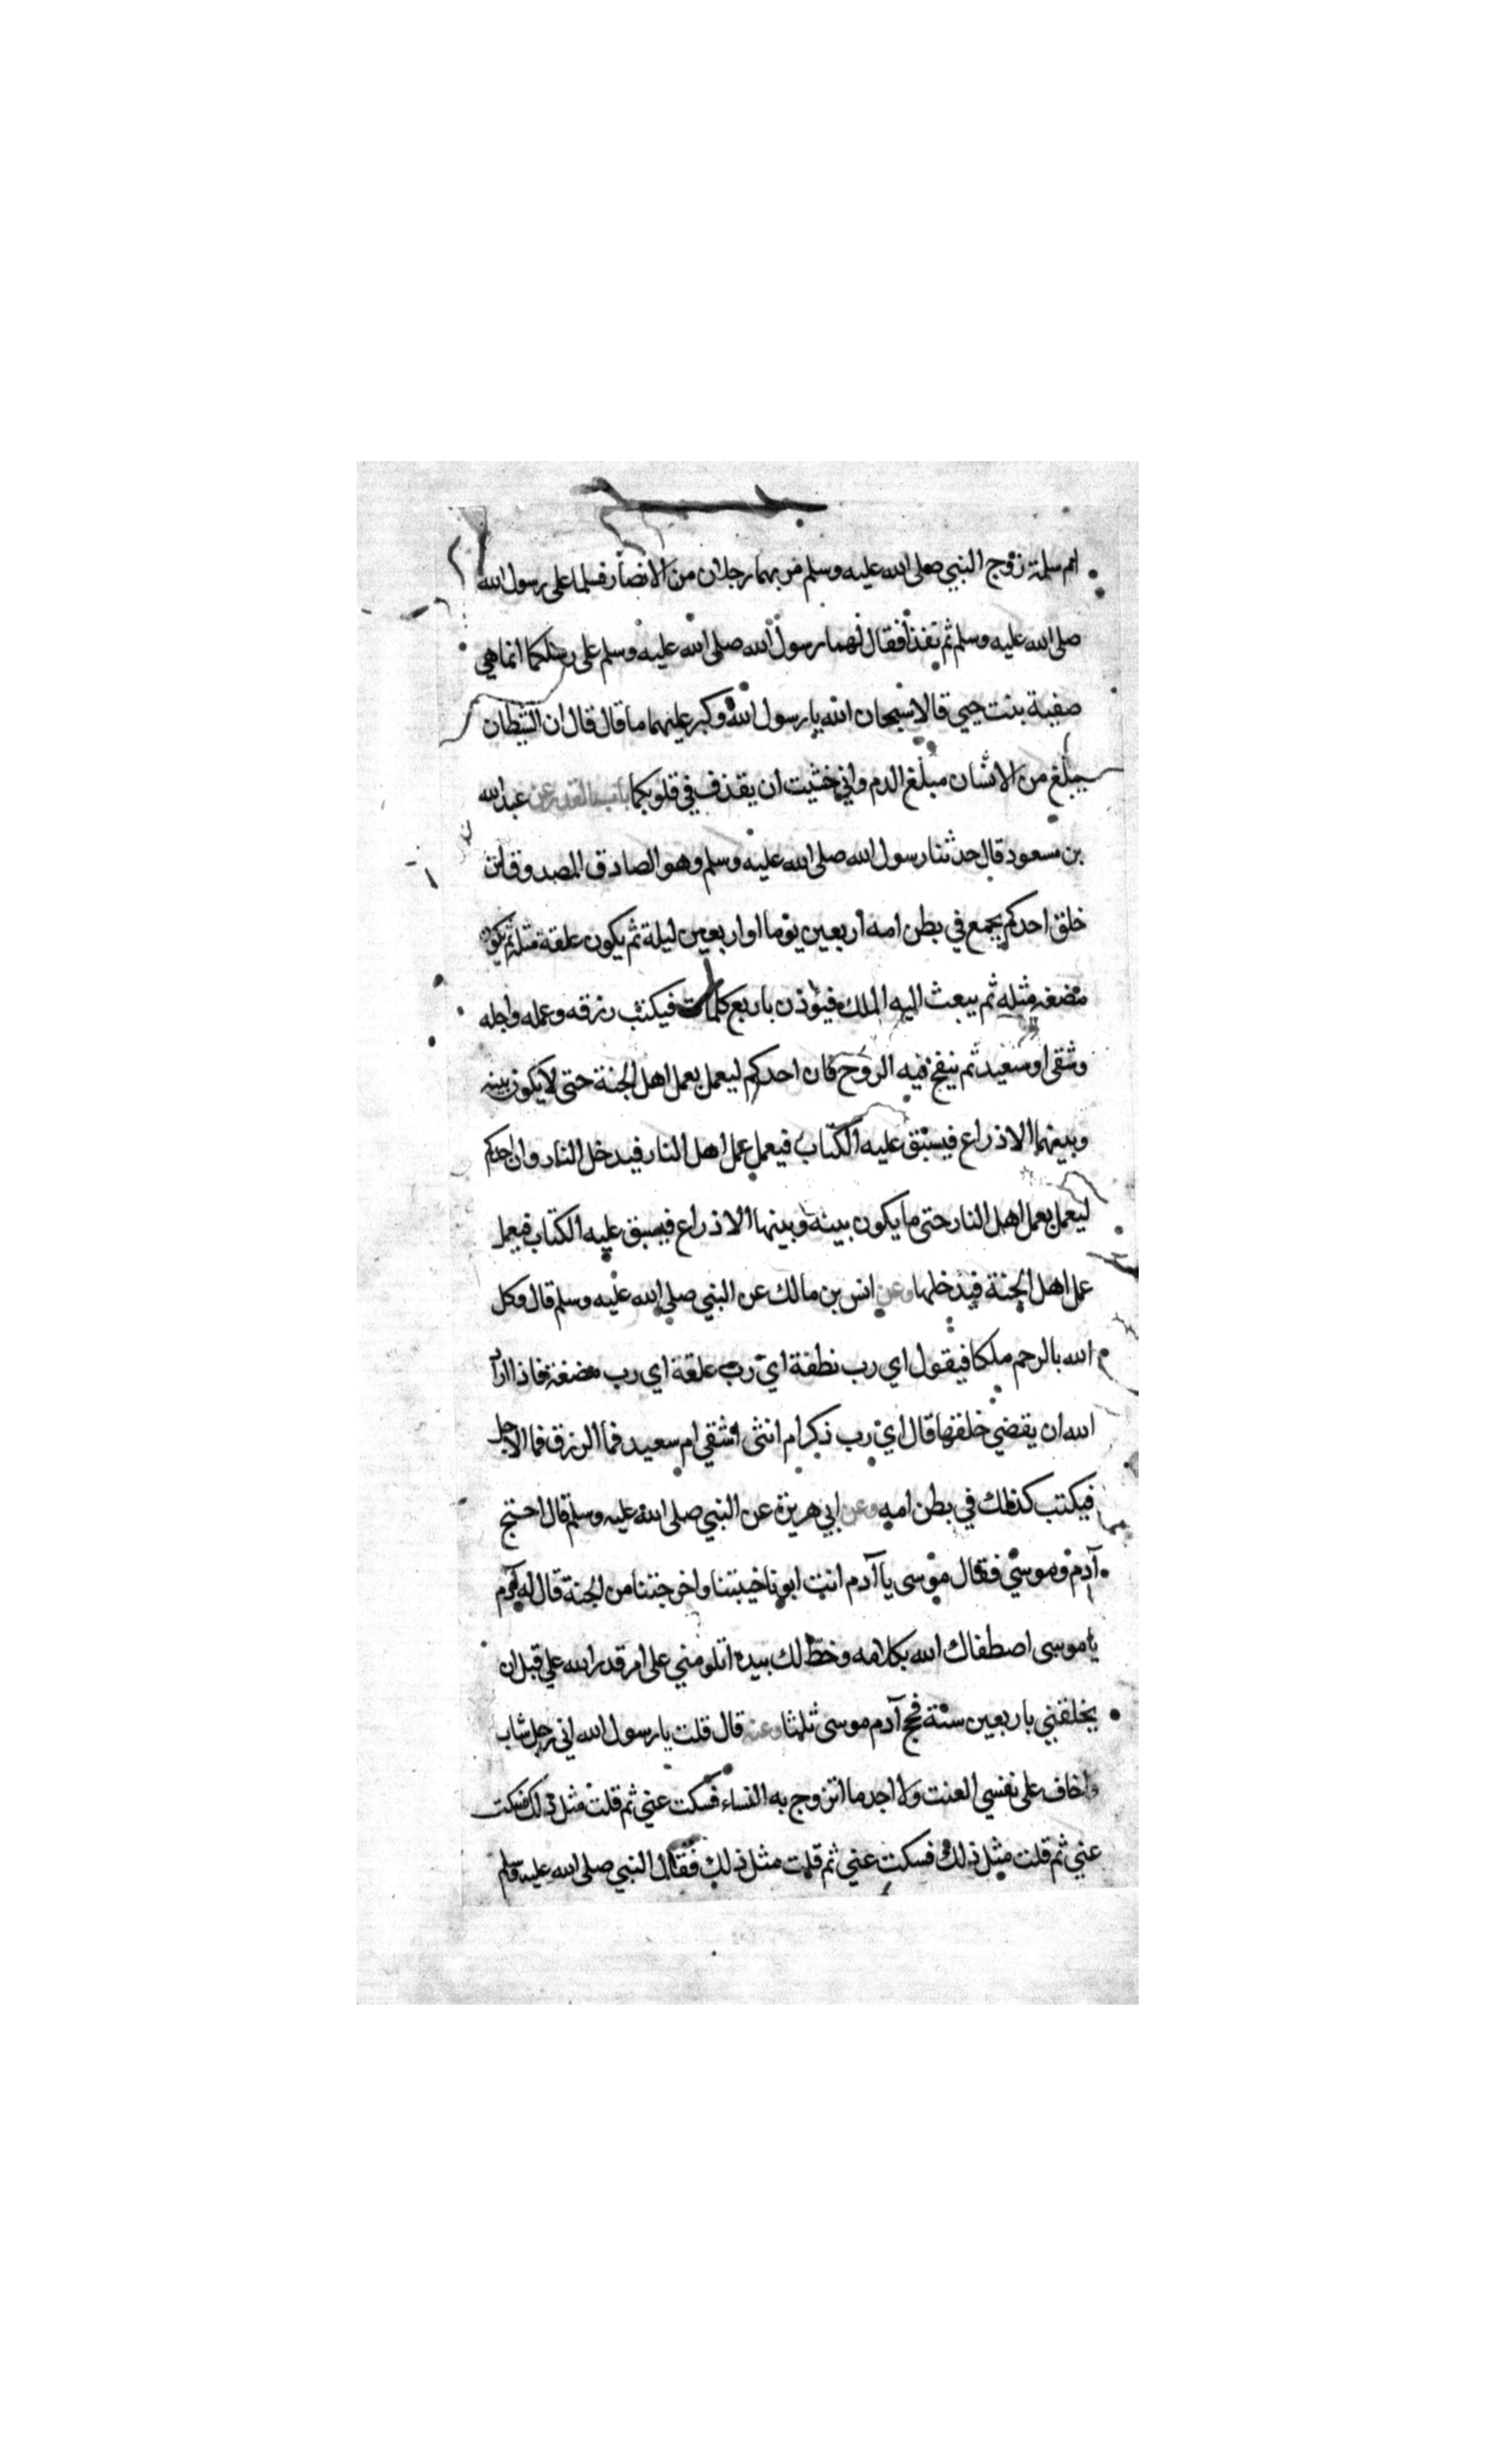 ام سلمة زوج النبي صلى الله عليه وسلم فمر بهما رجلان من الانصار فسلما على رسول الله
صلى الله عليه وسلم ثم نفذا فقال لهما رسول الله صلى الله عليه وسلم على رسلكما انما هي
صفية بنت حيي قالا سبحان الله يا رسول الله وكبر عليهما ما قال قال ان الشيطان
يبلغ من الانسان مبلغ الدم واني خشيت ان يقذف في قلوبكما باب القدر عن عبد الله
بن مسعود قال حدثنا رسول الله صلى الله عليه وسلم وهو الصادق المصدوق ان
خلق احدكم يجمع في بطن امه اربعين يوما او اربعين ليلة ثم يكون علقة مثله ثم يكون
مضغة مثله ثم يبعث اليه الملك فيؤذن باربع كلمات فيكتب رزقه وعمله واجله
وشقي او سعيد ثم ينفخ فيه الروح فان احدكم ليعمل بعمل اهل الجنة حتى لا يكون بينه
وبينها الا ذراع فيسبق عليه الكتاب فيعمل عمل اهل النار فيدخل النار وان احدكم
ليعمل بعمل اهل النار حتى ما يكون بينه وبينها الا ذراع فيسبق عليه الكتاب فيعمل
عمل اهل الجنة فيدخلها وعن انس بن مالك عن النبي صلى الله عليه وسلم قال وكل
الله بالرحم ملكا فيقول اي رب نطفة اي رب علقة اي رب مضغة فاذا اراد
الله ان يقضي خلقها قال اي رب ذكر ام انثى اشقي ام سعيد فما الرزق فما الاجل
فيكتب كذلك في بطن امه وعن ابي هريرة عن النبي صلى الله عليه وسلم قال احتج
آدم وموسى فقال موسى يا آدم انت ابونا خيبتنا واخرجتنا من الجنة قال له آدم
يا موسى اصطفاك الله بكلامه وخط لك بيده اتلومني على امر قدر الله علي قبل ان
يخلقني باربعين سنة فحج آدم موسى ثلثا وعنه قال قلت يا رسول الله اني رجل شاب
واخاف على نفسي العنت ولا اجد ما اتزوج به النساء فسكت عني ثم قلت مثل ذلك فسكت
عني ثم قلت مثل ذلك فسكت عني ثم قلت مثل ذلك فقال النبي صلى الله عليه وسلم